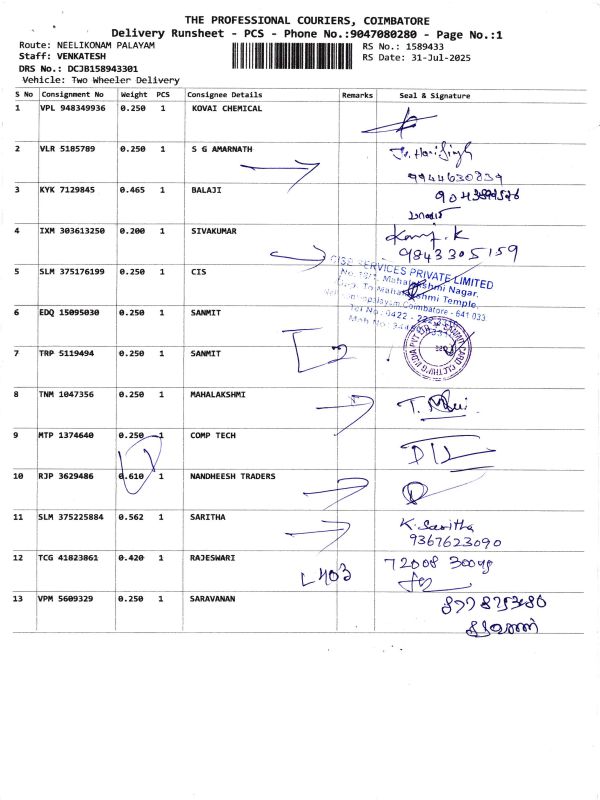 THE PROFESSIONAL COURIERS, COIMBATORE
Delivery Runsheet - PCS - Phone No.:9047080280 - Page No.:1
Route: NEELIKONAM PALAYAM
RS No.: 1589433
Staff: VENKATESH
RS Date: 31-Jul-2025
DRS No.: DCJB158943301
Vehicle: Two Wheeler Delivery
S No Consignment No Weight PCS Consignee Details Remarks Seal & Signature
1 VPL 948349936 0.250 1 KOVAI CHEMICAL
2 VLR 5185789 0.250 1 S G AMARNATH
9944630839
3 KYK 7129845 0.465 1 BALAJI
4 IXM 303613250 0.200 1 SIVAKUMAR
9843305159
SERVICES PRIVATE LIMITED
5 SLM 375176199 0.250 1 CIS
Coimbatore - 641 033.
6 EDQ 15095030 0.250 1 SANMIT
7 TRP 5119494 0.250 1 SANMIT
8 TNM 1047356 0.250 1 MAHALAKSHMI
9 MTP 1374640 0.250 1 COMP TECH
10 RJP 3629486 0.610 1 NANDHEESH TRADERS
11 SLM 375225884 0.562 1 SARITHA K. Saritha
9367623090
12 TCG 41823861 0.420 1 RAJESWARI
L 403
13 VPM 5609329 0.250 1 SARAVANAN